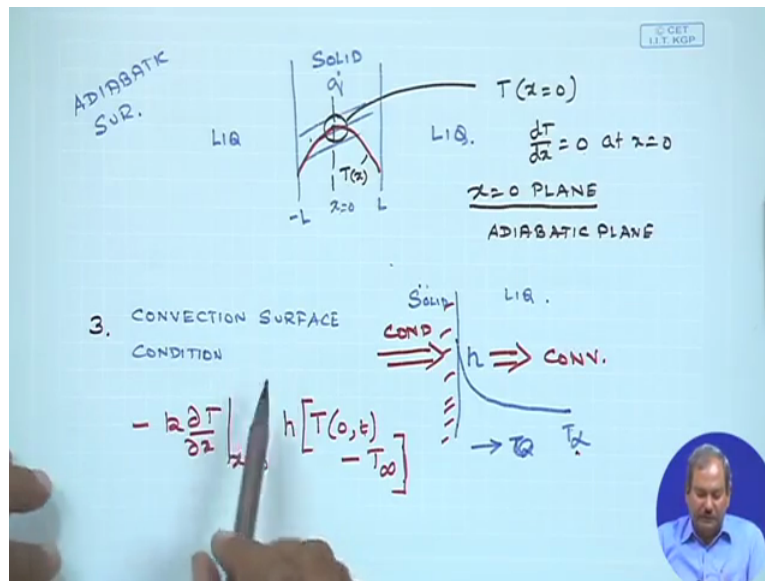 © CET
I.I.T. KGP
ADIABATIC
SUR.
SOLID
q̇
LIQ
LIQ.
T(x=0)
dT/dx = 0 at x=0
T(x)
-L
x=0
L
x=0 PLANE
ADIABATIC PLANE
3. CONVECTION SURFACE
CONDITION
SOLID
LIQ.
COND
h
CONV.
- k ∂T/∂x |
h [T(0,t)
- T∞]